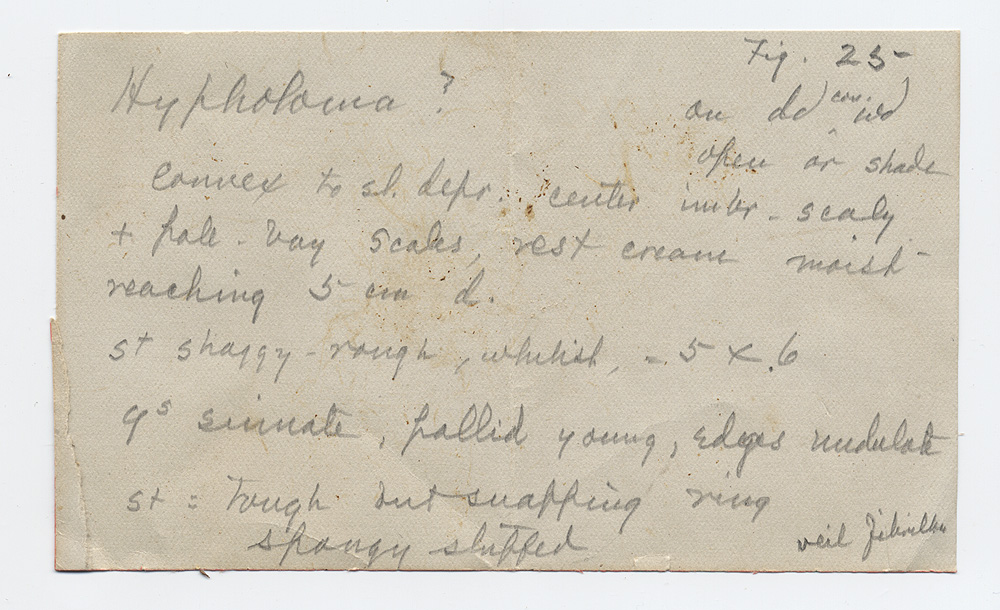 Fig. 25
Hypholoma ?
on dd con. wd
open or shade
Convex to sl. depr. center imbr. scaly
+ pale-bay scales, rest cream moist-
reaching 5 cm d.
st shaggy-rough, whitish, - 5 x .6
gs sinuate, pallid young, edges undulate
st = tough but snapping ring
spongy stuffed
veil fibrillar